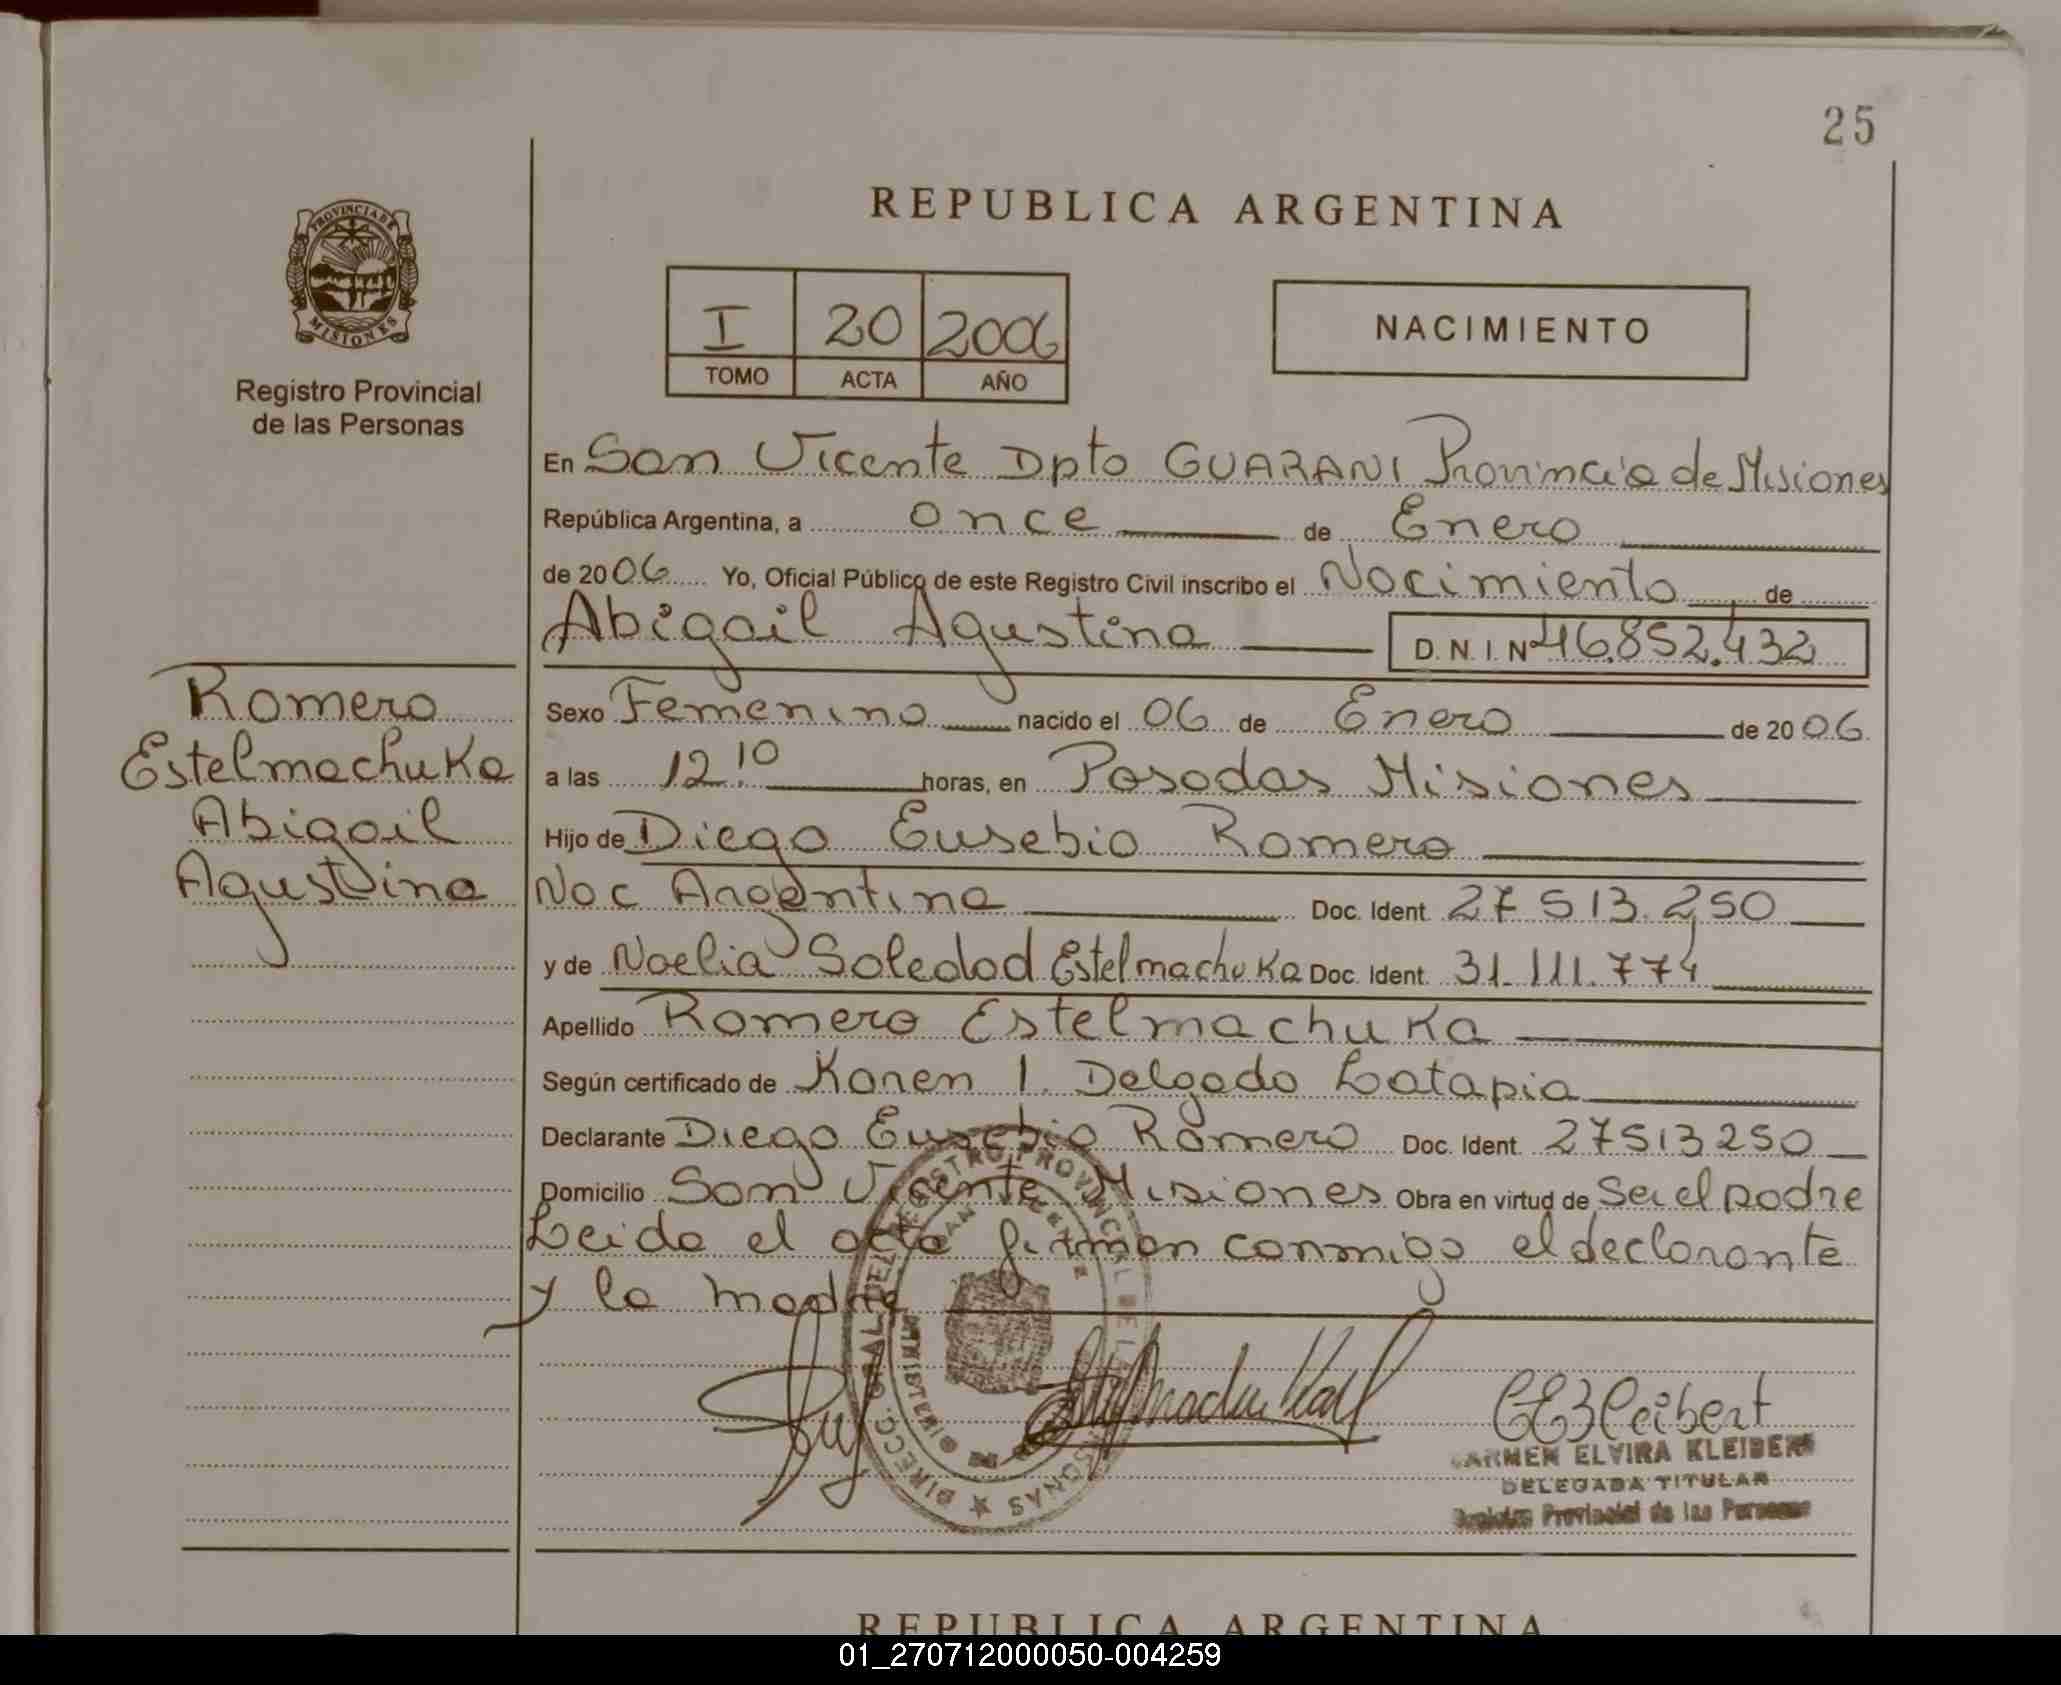 25
REPUBLICA ARGENTINA
PROVINCIA DE
MISIONES
Registro Provincial
de las Personas
I 20 2006
TOMO ACTA AÑO
NACIMIENTO
En San Vicente Dpto GUARANI Provincia de Misiones
República Argentina, a once de Enero
de 2006 Yo, Oficial Público de este Registro Civil inscribo el Nacimiento de
Abigail Agustina D.N.I. Nº 46.852.432
Romero
Estelmachuka
Abigail
Agustina
Sexo Femenino nacido el 06 de Enero de 2006
a las 12.10 horas, en Posadas Misiones
Hijo de Diego Eusebio Romero
Nac Argentina Doc. Ident. 27 513.250
y de Noelia Soledad Estelmachuka Doc. Ident. 31.111.774
Apellido Romero Estelmachuka
Según certificado de Karen I. Delgado Latapia
Declarante Diego Eusebio Romero Doc. Ident. 27513250
Domicilio San Vicente Misiones Obra en virtud de Ser el padre
Leida el acta firman conmigo el declarante
y la madre
DIRECC. GRAL. DEL REGISTRO PROVINCIAL DE LAS PERSONAS
SAN VICENTE
CARMEN ELVIRA KLEIBERT
DELEGADA TITULAR
Registro Provincial de las Personas
REPUBLICA ARGENTINA
01_270712000050-004259